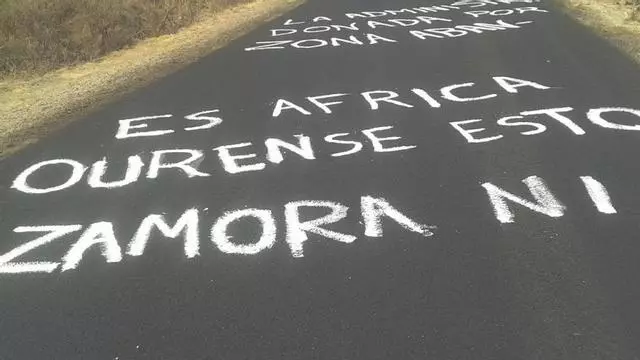 ZAMORA NI
OURENSE ESTO
ES AFRICA
ZONA ABAN-
DONADA POR
LA